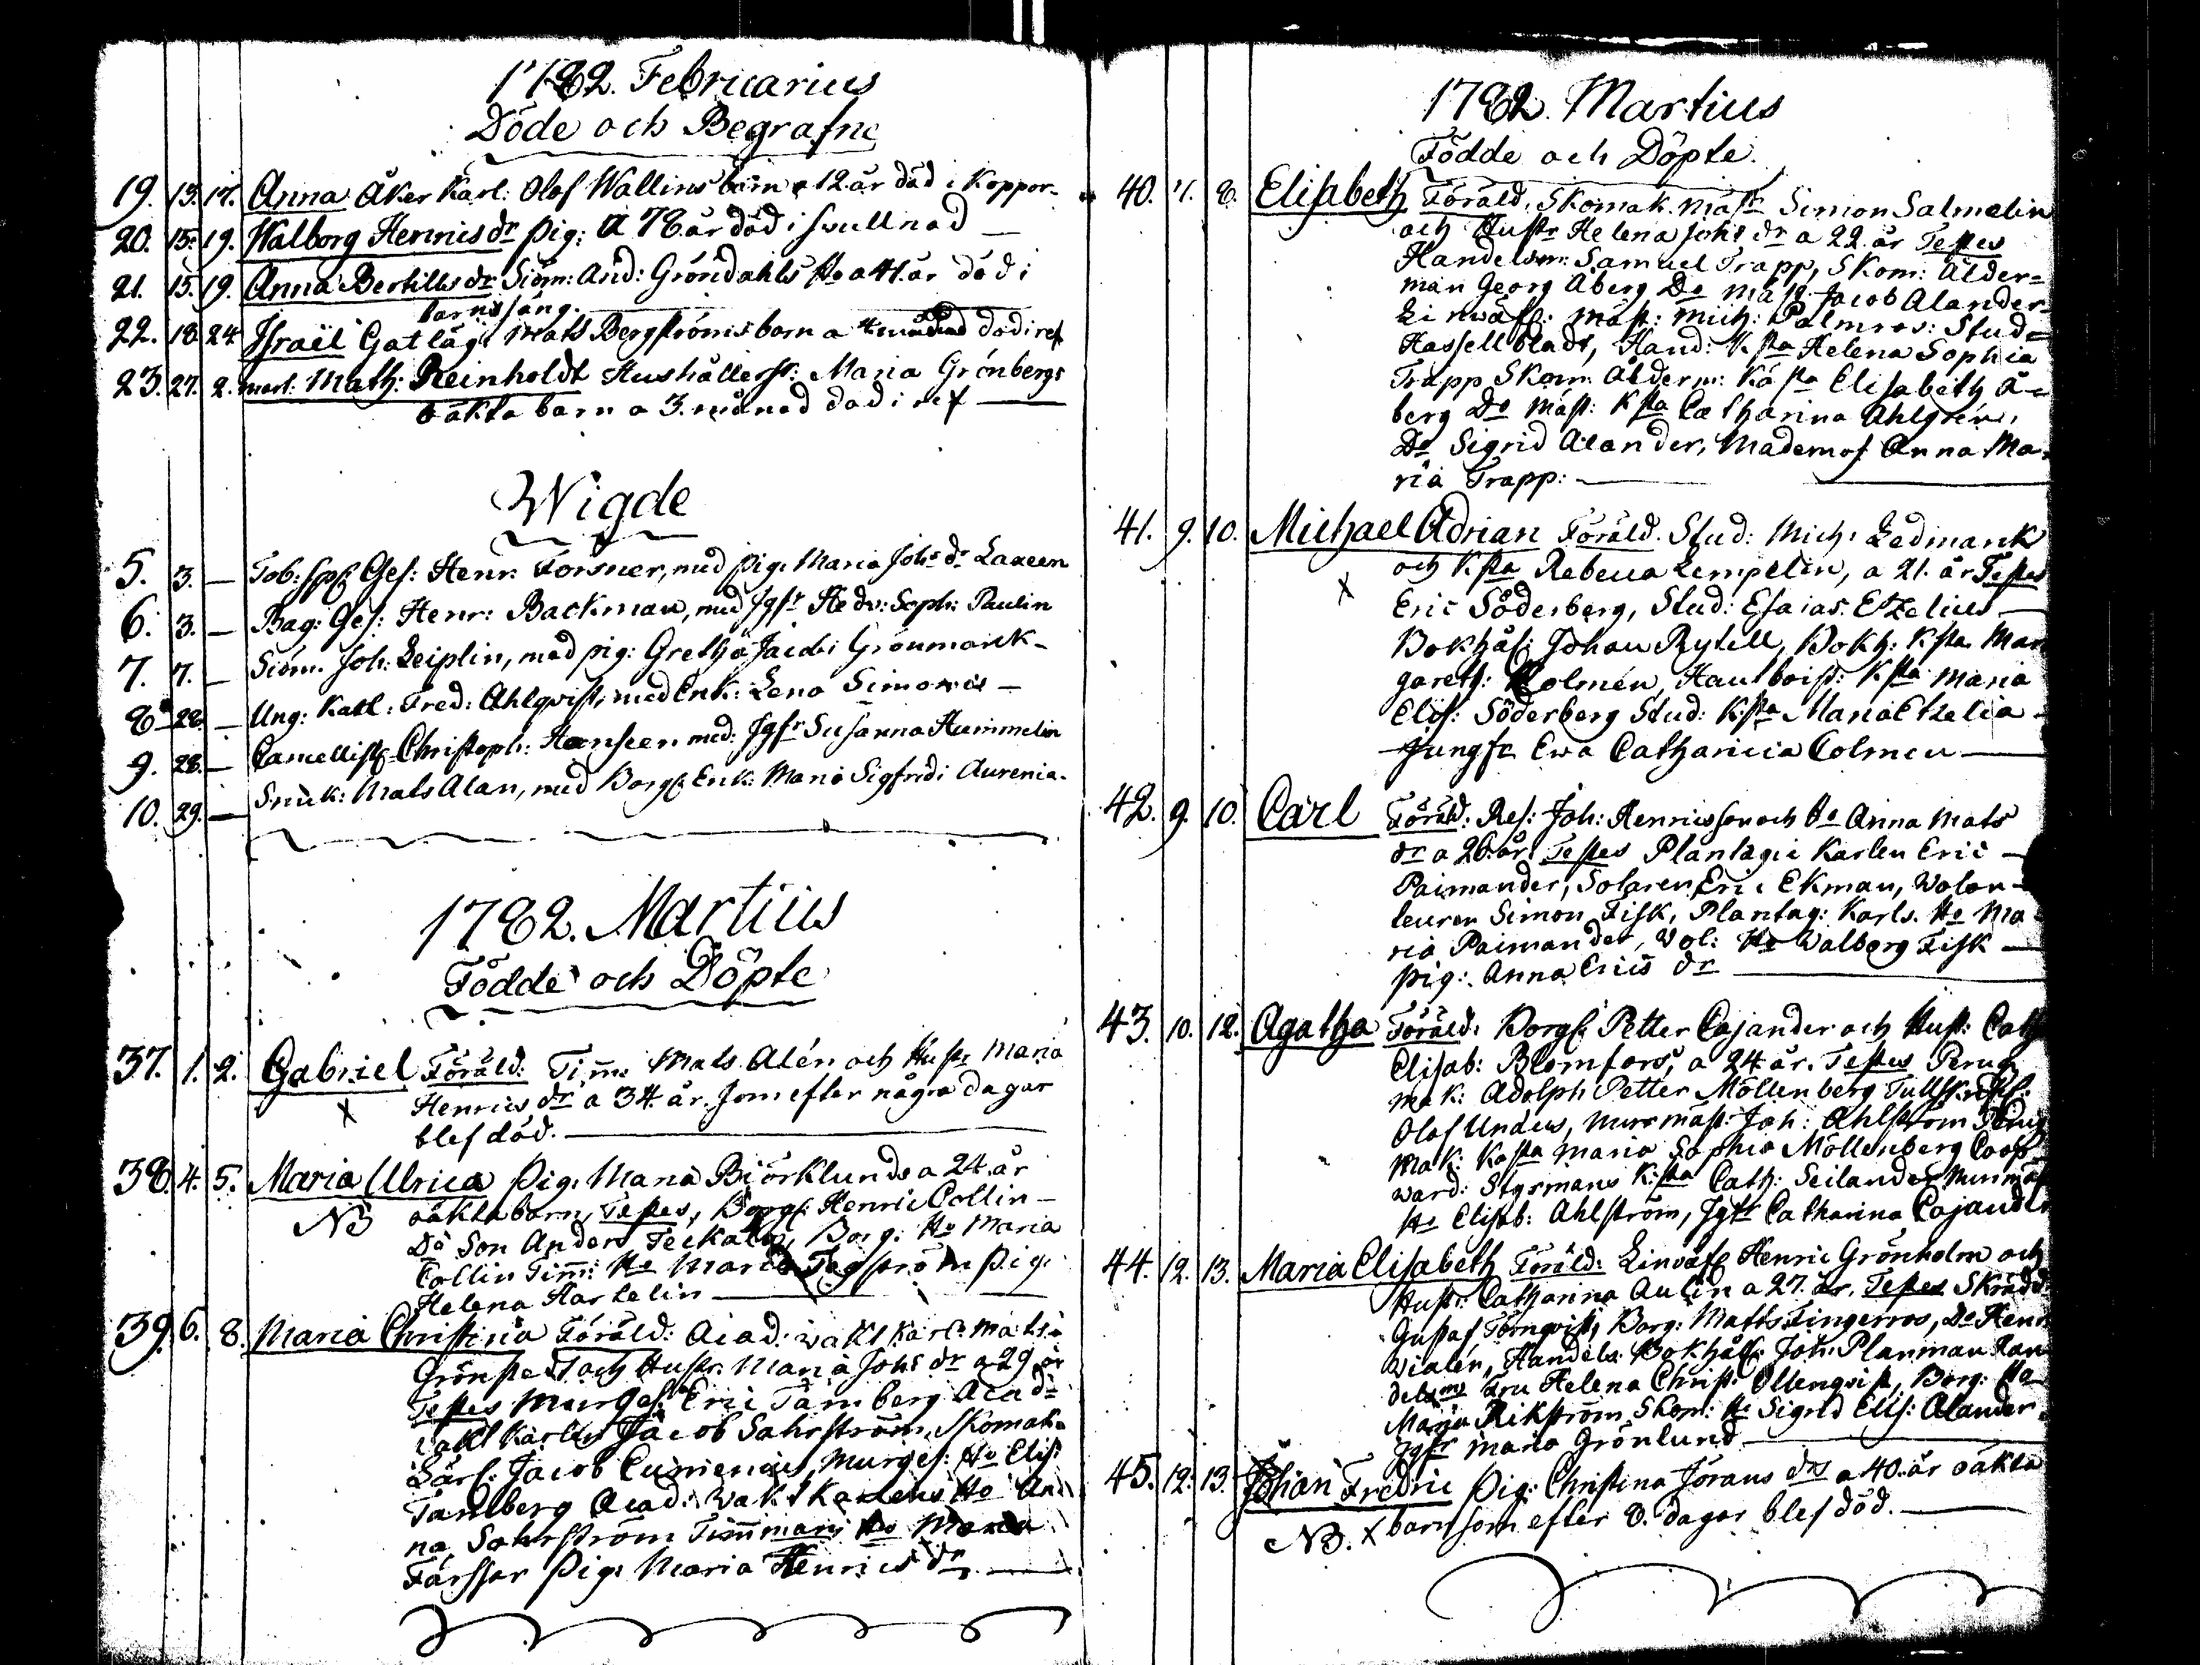 1782. Februarius
Döde och Begrafne
19. 13. 17. Anna Åker Karl: Olof Wallins barn a 12 år död i Koppor-
20. 15. 19. Walborg Henricsdr pig: a 78 år död i svullnad —
21. 15. 19. Anna Bertillsdr Siöm: And: Gröndahls Ho a 41. år död i
barnsäng.
22. 18. 24 Israël Gatläg: Mats Bergströms barn a 4 månad död i ref
23. 27. 2. Math: Reinholdt Hushållersk: Maria Grönbergs
oäkta barn a 3. månad död i ref —
Wigde
5. 3. — Tob: Ges: Henr: Forsner, med pig: Maria Johs dr Laxeen
6. 3. — Bag: Ges: Henr: Backman, med Jgfr Hedv: Soph: Paulin
7. 7. — Siöm. Joh: Leiplin, med pig: Gretha Jacobi Grönmarck-
8. 28. — Ung: Karl: Fred: Ahlqvist, med Enk: Lena Simonis —
9. 28. — Cancellist Christoph: Hansen med: Jgfr Susanna Hummelin
10. 29. — Snick: Mats Alan, med Borg: Enk: Maria Sigfridi Aurenia.
1782. Martius
Födde och Döpte
37. 1. 2. Gabriel Föräld: Tim: Mats Alén och Hustr Maria
Henrics dr a 34. år. som efter några dagar
X
blef död. —
38. 4. 5. Maria Ulrica Pig: Maria Biörklunds a 24. år
NB oäkta barn, Testes, Borg: Henric Collin —
Do Son Anders Teckala, Borg: Ho Maria
Collin Tim: Ho Maria Tegström Pig:
Helena Hartelin —
39. 6. 8. Maria Christina Föräld: Acad: wakt karl: Mats
Grönstedt och Hustr: Maria Johs dr a 29 år
Testes Murges: Eric Tamberg Acad=
wakt karlen Jacob Sahrström, Skomak=
Lärl: Jacob Cumenius, Murges: Ho Elis:
Tamberg Acad: Wakt Karlens Ho An
na Sahrström Timmans Ho Maria
Färssar Pig: Maria Henrics dr. —
1782. Martius
Födde och Döpte.
40. 7. 8. Elisabeth Föräld. Skomak. mäst Simon Salmelin
och Hustr Helena Johs dr a 22. år Testes
Handelsm: Samuel Trapp, Skom: Ålder=
man Georg Åberg Do mäst. Jacob Alander
Linwäf: mäst: Mich: Palmros: Stud=
Hassellbladt, Hand: K. sta Helena Sophia
Trapp Skom: Ålderm: Kä sta Elisabeth Å=
berg Do mäst: K sta Catharina Ahlgrén,
Do Sigrid Alander, Mademos Anna Ma=
ria Trapp: —
41. 9. 10. Michael Adrian Föräld. Stud: Mich: Ledmarck
och K. sta Rebecca Lempelin, a 21. år Testes
X Eric Söderberg, Stud: Esaias: Etzelius —
Bokhål: Johan Rytell, Bokh: K sta Mar
gareth: Kolmén, Hautboist: K sta Maria
Elis: Söderberg Stud: K. sta Maria Etzelia —
Jungfr Ewa Catharina Colmen —
42. 9. 10. Carl Föräld: Res: Joh: Henricsson och Ho Anna Mats
dr a 26. år Testes Plantagie Karlen Eric —
Paimander, Solaren Eric Ekman, Wolon-
teuren Simon Fisk, Plantag: Karls. Ho Ma
ria Paimander, Vol: Ho Walborg Fisk —
pig: Anna Erics dr —
43. 10. 12. Agatha Föräld: Borg: Petter Cajander och Hust: Cath
Elisab: Blomfors, a 24 år. Testes Peruq
mak: Adolph Petter Möllenberg
Olof Undus, Murmäst: Joh: Ahlström Peruq
Mak: Kä sta Maria Sophia Möllenberg Coop
ward: Stysmans K: sta Cath: Seilander Murmäst
Ho Elisab: Ahlström, Jgfr Catharina Cajander
44. 12. 13. Maria Elisabeth Föräld: Linväf Henric Grönholm och
Hustr: Catharina Aulin a 27. år. Testes Skrädd:
Gustaf Törnqvist, Borg: Matts Fingerroos, Do Henr
Wialén, Handels Bokhåll: Joh: Planman Han
delsms Fru Helena Christ: Ollenqvist, Borg: Ho
Maria Rikström, Skom: Ho Sigrid Elis: Alander
Jgfr Maria Grönlund —
45. 12. 13. Johan Fredric Pig: Christina Jörans drs a 40. år oäkta
NB. X barn som efter 8. dagar blef död. —